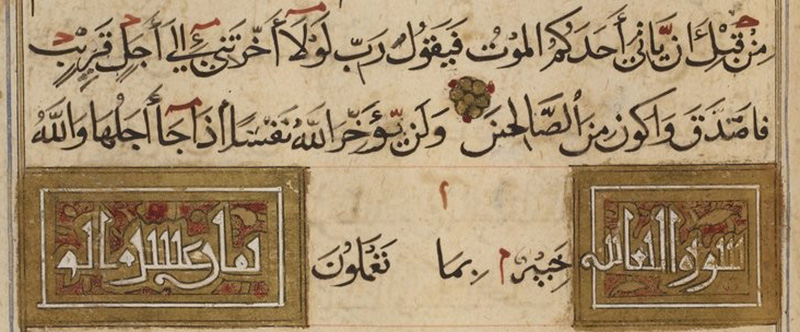 مِنْ قَبْلِ أَنْ يَأْتِيَ أَحَدَكُمُ الْمَوْتُ فَيَقُولُ رَبِّ لَوْلَا أَخَّرْتَنِي إِلَى أَجَلٍ قَرِيبٍ
فَأَصَّدَّقَ وَأَكُونَ مِنَ الصَّالِحِينَ وَلَنْ يُؤَخِّرَ اللَّهُ نَفْسًا إِذَا جَاءَ أَجَلُهَا وَاللَّهُ
سورة التغابن خَبِيرٌ بِمَا تَعْمَلُونَ